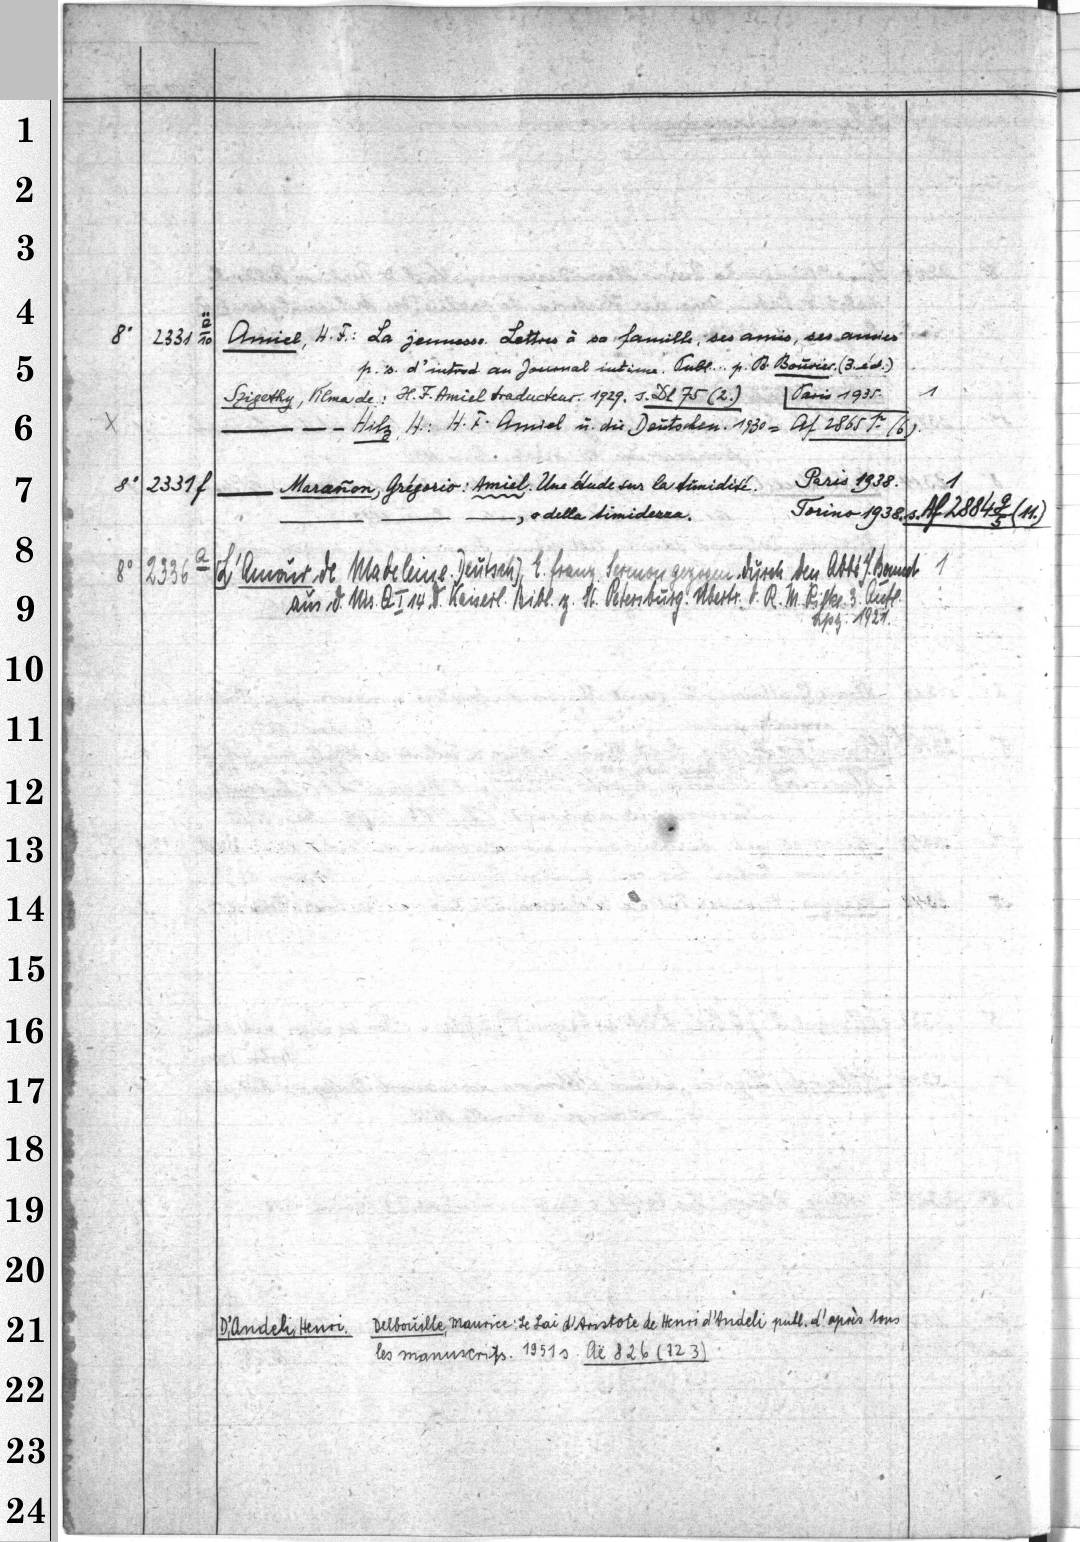 1
2
3
4
8° 2331 ä/10 Amiel, H.F.: La jeunesse. Lettres à sa famille, ses amis, ses amies
5
p. s. d'introd au Journal intime. Publ... p. B. Bouvier. (3. éd.)
Szigethy, Vilma de: H.F. Amiel traducteur. 1929. s. Dl 75 (2.) Paris 1935. 1
6
X ——— — — Hilz, H.: H. F. Amiel u. die Deutschen. 1930 = Af 2865 (6).
7
8° 2331 f ——— Marañon, Grégorio: Amiel. Une étude sur la timidité. Paris 1938. 1
——— ——— ———, o della timidezza. Torino 1938. s. Af 2884 (11.)
8
8° 2336 a [L'Amour de Madeleine. Deutsch]. E. franz. Sermon gezogen durch den Abbé J. Bonnet 1
9
aus d. Ms. Q I 14 d. Kaiserl. Bibl. z. St. Petersburg. Übertr. v. R. M. Rilke. 3. Aufl.
Lpz. 1921.
10
11
12
13
14
15
16
17
18
19
20
21
D'Andeli, Henri. Delbouille, Maurice: Le Lai d'Aristote de Henri d'Andeli publ. d'après tous
les manuscrits. 1951 s. Ac 826 (123)
22
23
24